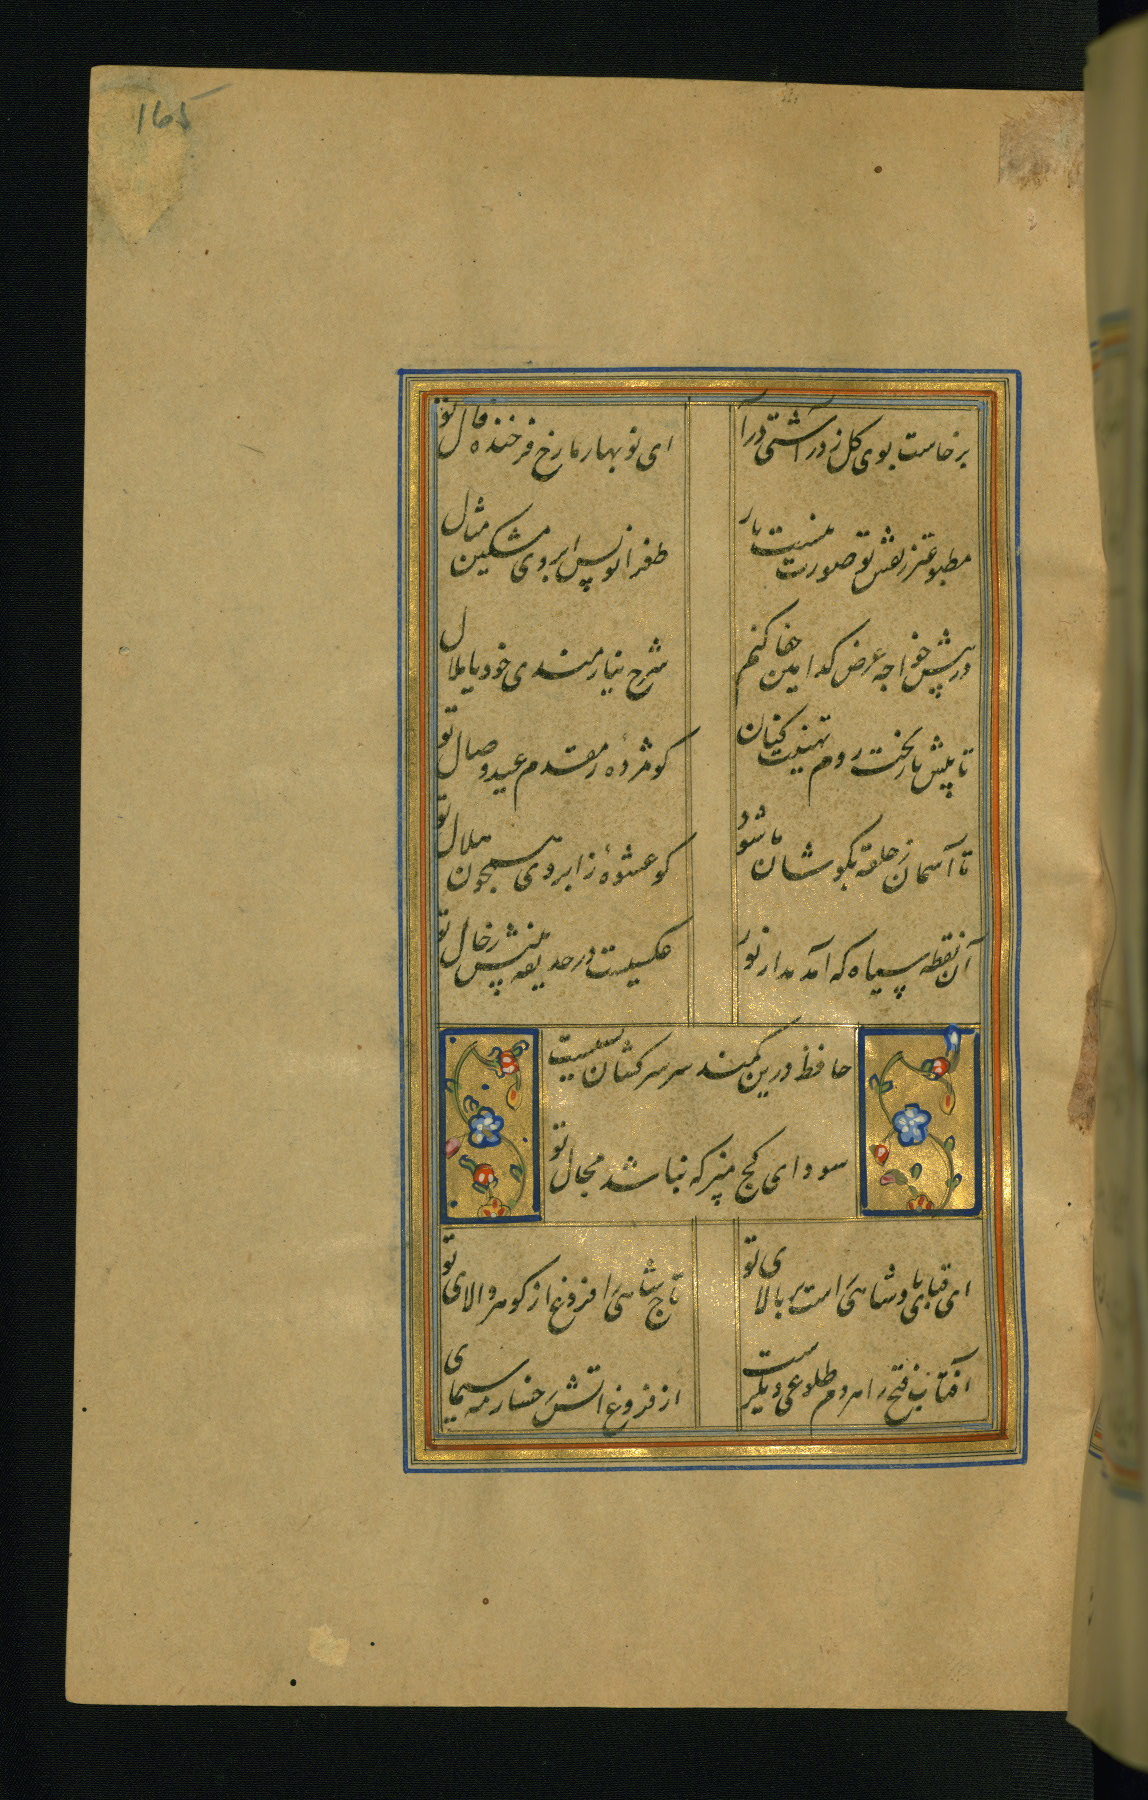 165
برخاست بوی گل ز در آشتی درآ
ای نوبهار ما رخ فرخنده فال تو
مطبوعتر ز نقش تو صورت نبست باز
طغرانویس ابروی مشکین مثال
در پیش خواجه عرض کدامین جفا کنم
شرح نیازمندی خود یا ملال
تا پیش باز بخت روم تهنیت کنان
کو مژدهٔ ز مقدم عید وصال تو
تا آسمان ز حلقه بگوشان ما شود
کو عشوهٔ ز ابروی همچون هلال تو
آن نقطه سیاه که آمد مدار نور
عکسیست در حدیقه بینش ز خال تو
حافظ درین کمند سر سرکشان بسیست
سودای کج مپز که نباشد مجال تو
ای قبای پادشاهی راست بر بالای تو
تاج شاهی را فروغ از گوهر والای تو
آفتاب فتح را هر دم طلوعی دیگرست
از فروغ آتش رخسار مه سیمای